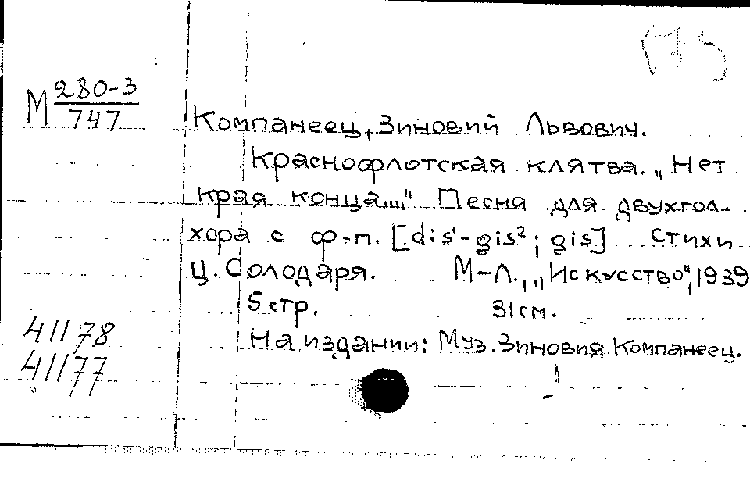 175
М 280-3
747
Компанеец, Зиновий Львович.
Краснофлотская клятва. „Нет
края конца..." Песня для двухгол.
хора с ф-п. [dis¹-gis²; gis] Стихи
Ц. Солодаря. М-Л., „Искусство", 1939
5 стр. 31 см.
На издании: Муз. Зиновия Компанеец.
41178
41177